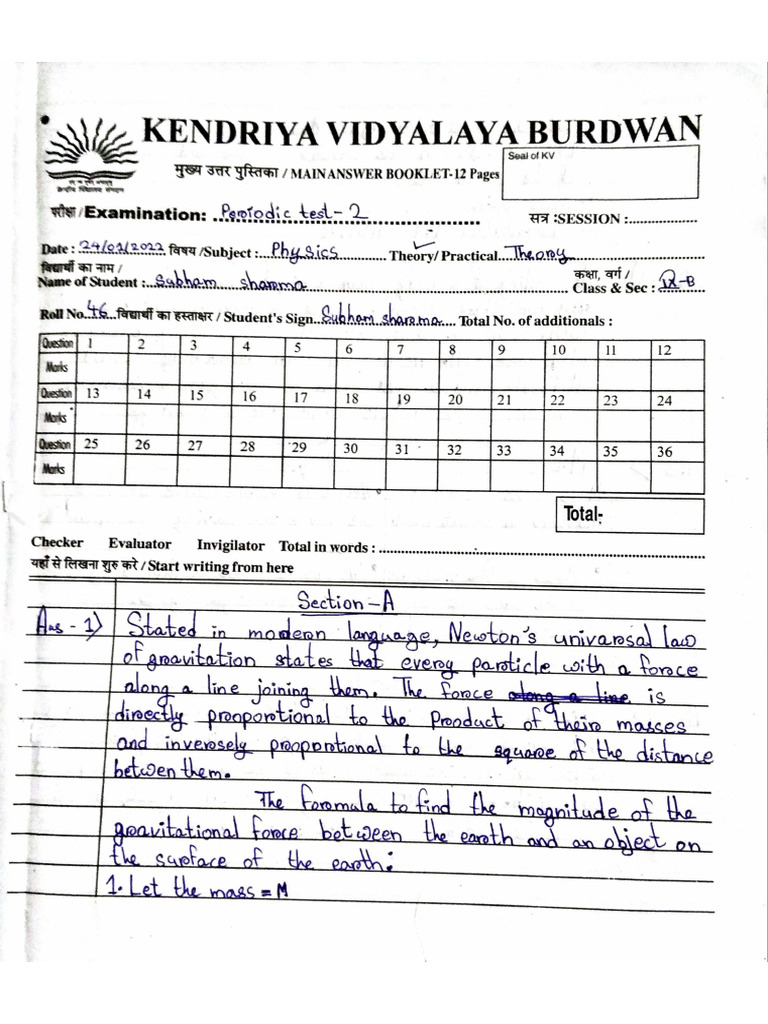 KENDRIYA VIDYALAYA BURDWAN
Seal of KV
मुख्य उत्तर पुस्तिका / MAIN ANSWER BOOKLET-12 Pages
परीक्षा / Examination: Periodic test-2
सत्र :SESSION :
Date : 24/01/2022 विषय /Subject : Physics Theory/ Practical Theory
विद्यार्थी का नाम /
Name of Student : Subham sharma
कक्षा, वर्ग /
Class & Sec : IX-B
Roll No. 46 विद्यार्थी का हस्ताक्षर / Student's Sign. Subham sharma Total No. of additionals :
Question 1 2 3 4 5 6 7 8 9 10 11 12
Marks
Question 13 14 15 16 17 18 19 20 21 22 23 24
Marks
Question 25 26 27 28 29 30 31 32 33 34 35 36
Marks
Total:-
Checker Evaluator Invigilator Total in words :
यहाँ से लिखना शुरु करे / Start writing from here
Section-A
Ans - 1) Stated in modern language, Newton's univarsal law
of gravitation states that every particle with a force
along a line joining them. The force along a line is
directly proportional to the Product of their masses
and inversely proportional to the square of the distance
between them.
The formula to find the magnitude of the
gravitational force between the earth and an object on
the surface of the earth:
1. Let the mass = M